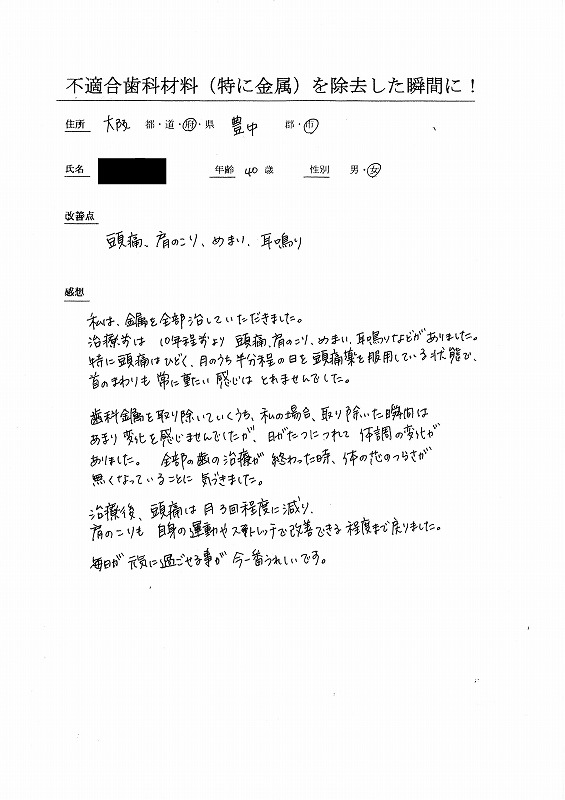 不適合歯科材料（特に金属）を除去した瞬間に！
住所 大阪 都・道・府・県 豊中 郡・市
氏名 年齢 40 歳 性別 男・女
改善点
頭痛、肩のこり、めまい、耳鳴り
感想
私は、金属を全部治していただきました。
治療前は 10年程前より 頭痛、肩のこり、めまい、耳鳴りなどがありました。
特に頭痛はひどく、月のうち半分程の日を頭痛薬を服用している状態で、
首のまわりも 常に重たい感じは とれませんでした。
歯科金属を取り除いていくうち、私の場合、取り除いた瞬間は
あまり変化を感じませんでしたが、日がたつにつれて 体調の変化が
ありました。 全部の歯の治療が 終わった時、体の他のつらさが
無くなっていることに 気づきました。
治療後、頭痛は月3回程度に減り、
肩のこりも 自身の運動やストレッチで改善できる程度まで戻りました。
毎日が 元気に過ごせる事が 今一番うれしいです。